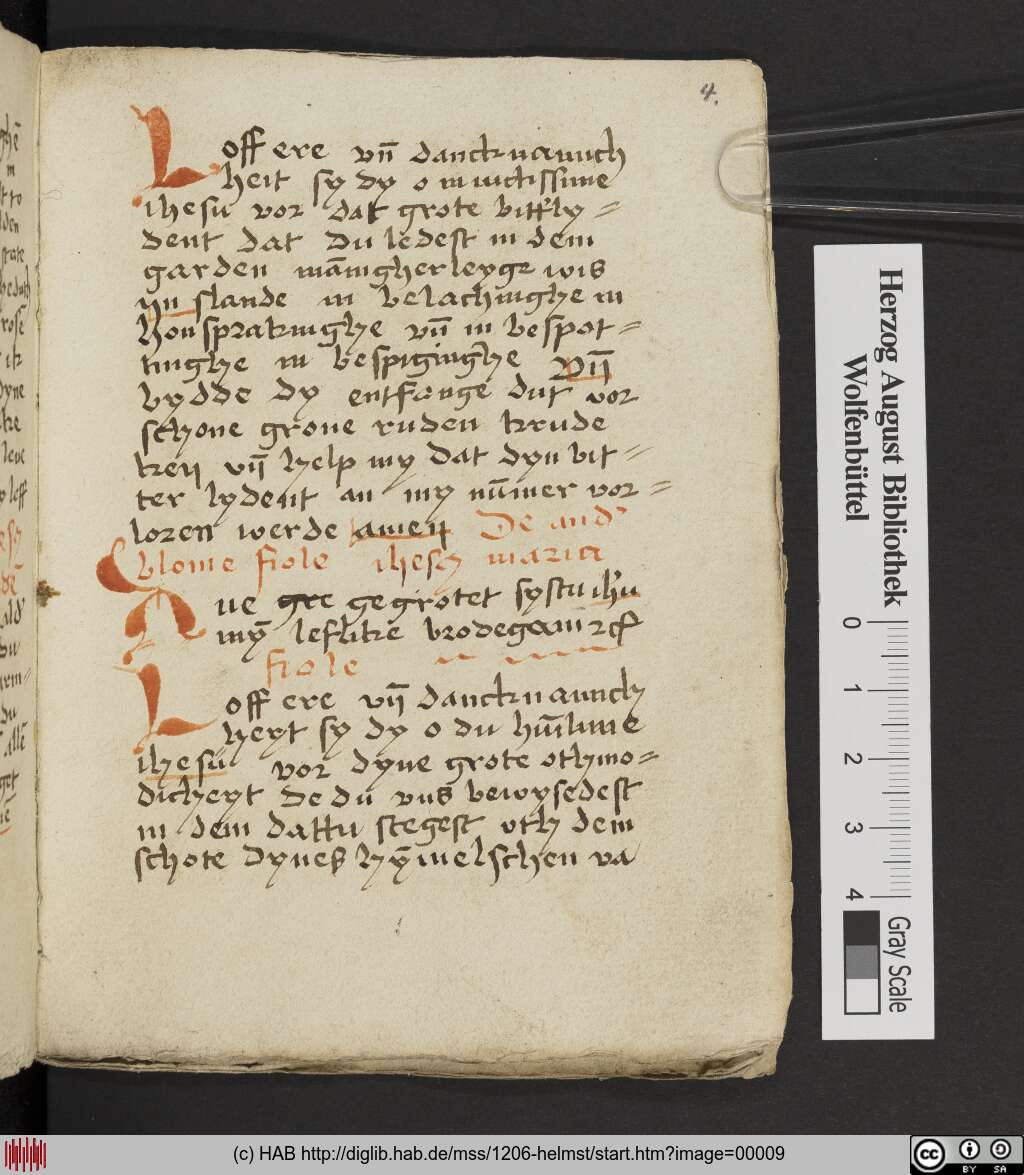 4.
Loff ere vn̄ dancknamich
heit sy dy o mitictissime
ihesu vor dat grote bitt'ly=
dent dat du ledest in dem
garden mānigherleyge wis
yn slande in belachinghe in
honsprakinghe vn̄ in bespot=
tinghe in bespiginghe vn̄
bydde dy entfange dut vor
schone grone ruden krude
ken vn̄ help my dat dyn bit=
ter lydent an my nūmer vor=
loren werde amen De and'
blome fiole ihesꝫ maria
Aue gegrotet systu ih'u
mȳ leflike brodegam ꝛc̄
fiole
Loff ere vn̄ dancknamich
heyt sy dy o du hūilime
ihesu vor dyne grote othmo=
dicheyt de du vns bewysedest
in dem dattu stegest vth dem
schote dynes hȳmelschen va
Herzog August Bibliothek
Wolfenbüttel
0 1 2 3 4
Gray Scale
(c) HAB http://diglib.hab.de/mss/1206-helmst/start.htm?image=00009
cc BY SA